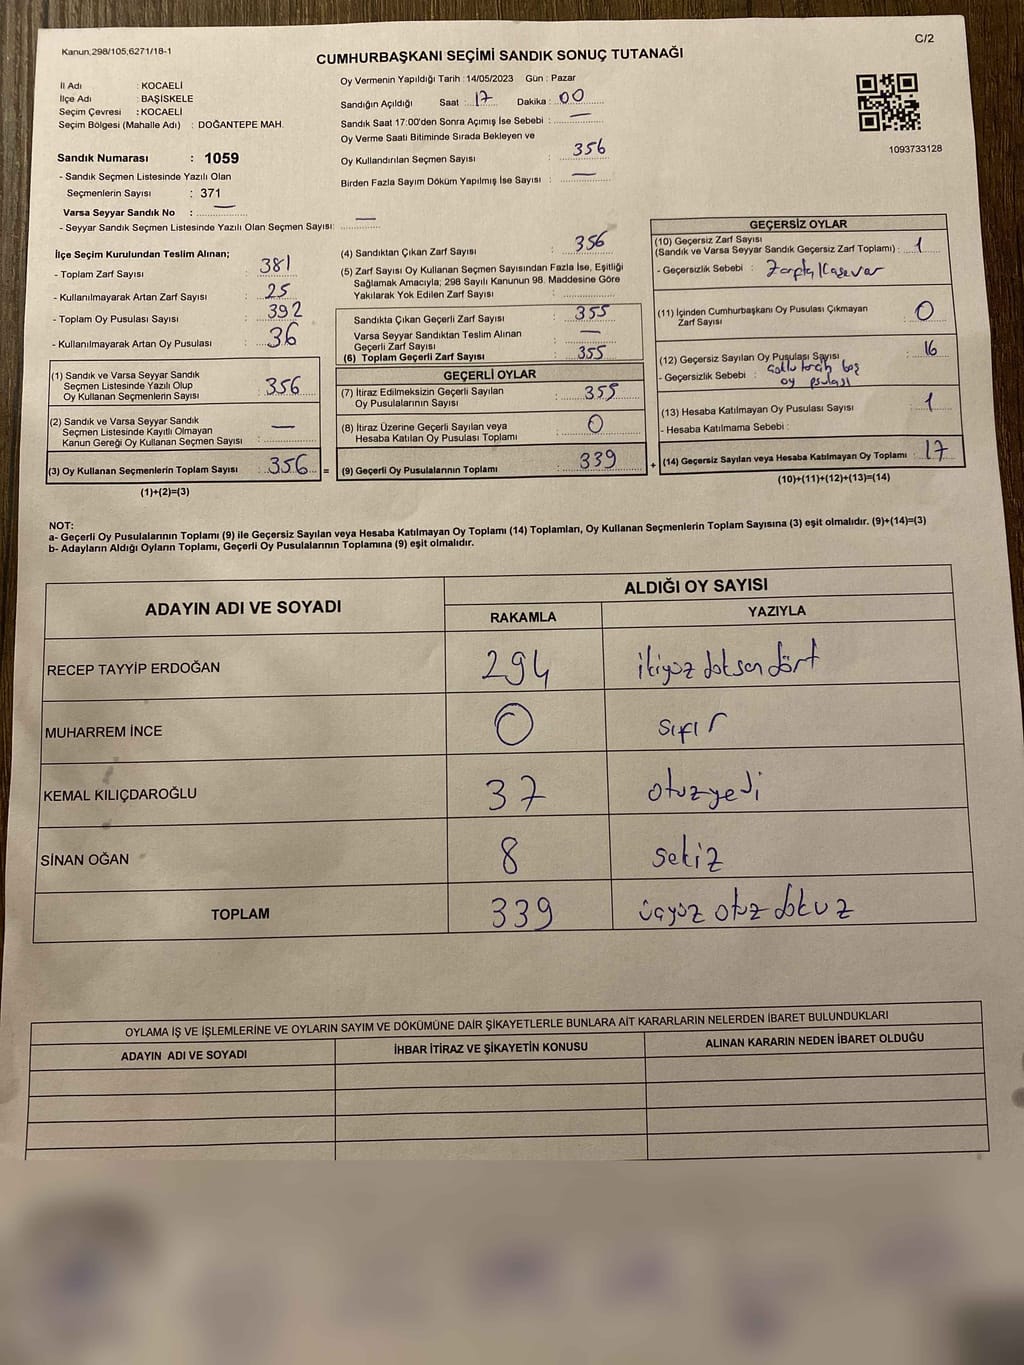 Kanun.298/105,6271/18-1
C/2
CUMHURBAŞKANI SEÇİMİ SANDIK SONUÇ TUTANAĞI
İl Adı : KOCAELİ
İlçe Adı : BAŞİSKELE
Seçim Çevresi : KOCAELİ
Seçim Bölgesi (Mahalle Adı) : DOĞANTEPE MAH.
Sandık Numarası : 1059
- Sandık Seçmen Listesinde Yazılı Olan
Seçmenlerin Sayısı : 371
Varsa Seyyar Sandık No : —
- Seyyar Sandık Seçmen Listesinde Yazılı Olan Seçmen Sayısı: —
Oy Vermenin Yapıldığı Tarih :14/05/2023 Gün : Pazar
Sandığın Açıldığı Saat : 17 Dakika : 00
Sandık Saat 17:00'den Sonra Açımış İse Sebebi : —
Oy Verme Saati Bitiminde Sırada Bekleyen ve
Oy Kullandırılan Seçmen Sayısı : 356
Birden Fazla Sayım Döküm Yapılmış İse Sayısı : —
1093733128
İlçe Seçim Kurulundan Teslim Alınan;
- Toplam Zarf Sayısı : 381
- Kullanılmayarak Artan Zarf Sayısı : 25
- Toplam Oy Pusulası Sayısı : 392
- Kullanılmayarak Artan Oy Pusulası : 36
(1) Sandık ve Varsa Seyyar Sandık
Seçmen Listesinde Yazılı Olup
Oy Kullanan Seçmenlerin Sayısı : 356
(2) Sandık ve Varsa Seyyar Sandık
Seçmen Listesinde Kayıtlı Olmayan
Kanun Gereği Oy Kullanan Seçmen Sayısı : —
(3) Oy Kullanan Seçmenlerin Toplam Sayısı : 356 =
(1)+(2)=(3)
(4) Sandıktan Çıkan Zarf Sayısı : 356
(5) Zarf Sayısı Oy Kullanan Seçmen Sayısından Fazla İse, Eşitliği
Sağlamak Amacıyla; 298 Sayılı Kanunun 98. Maddesine Göre
Yakılarak Yok Edilen Zarf Sayısı :
Sandıkta Çıkan Geçerli Zarf Sayısı : 355
Varsa Seyyar Sandıktan Teslim Alınan
Geçerli Zarf Sayısı : —
(6) Toplam Geçerli Zarf Sayısı : 355
GEÇERLİ OYLAR
(7) İtiraz Edilmeksizin Geçerli Sayılan
Oy Pusulalarının Sayısı : 355
(8) İtiraz Üzerine Geçerli Sayılan veya
Hesaba Katılan Oy Pusulası Toplamı : 0
(9) Geçerli Oy Pusulalarının Toplamı : 339 +
GEÇERSİZ OYLAR
(10) Geçersiz Zarf Sayısı
(Sandık ve Varsa Seyyar Sandık Geçersiz Zarf Toplamı) : 1
- Geçersizlik Sebebi :
(11) İçinden Cumhurbaşkanı Oy Pusulası Çıkmayan
Zarf Sayısı : 0
(12) Geçersiz Sayılan Oy Pusulası Sayısı : 16
- Geçersizlik Sebebi : boş
oy psulası
(13) Hesaba Katılmayan Oy Pusulası Sayısı : 1
- Hesaba Katılmama Sebebi :
(14) Geçersiz Sayılan veya Hesaba Katılmayan Oy Toplamı : 17
(10)+(11)+(12)+(13)=(14)
NOT:
a- Geçerli Oy Pusulalarının Toplamı (9) ile Geçersiz Sayılan veya Hesaba Katılmayan Oy Toplamı (14) Toplamları, Oy Kullanan Seçmenlerin Toplam Sayısına (3) eşit olmalıdır. (9)+(14)=(3)
b- Adayların Aldığı Oyların Toplamı, Geçerli Oy Pusulalarının Toplamına (9) eşit olmalıdır.
ADAYIN ADI VE SOYADI
ALDIĞI OY SAYISI
RAKAMLA YAZIYLA
RECEP TAYYİP ERDOĞAN 294 ikiyüz doksan dört
MUHARREM İNCE 0 sıfır
KEMAL KILIÇDAROĞLU 37 otuzyedi
SİNAN OĞAN 8 sekiz
TOPLAM 339 üçyüz otuz dokuz
OYLAMA İŞ VE İŞLEMLERİNE VE OYLARIN SAYIM VE DÖKÜMÜNE DAİR ŞİKAYETLERLE BUNLARA AİT KARARLARIN NELERDEN İBARET BULUNDUKLARI
ADAYIN ADI VE SOYADI İHBAR İTİRAZ VE ŞİKAYETİN KONUSU ALINAN KARARIN NEDEN İBARET OLDUĞU